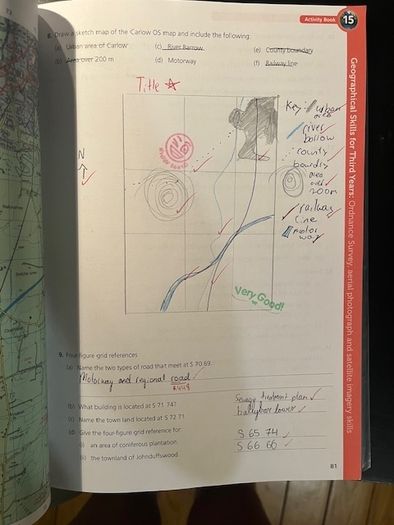 Activity Book 15
8. Draw a sketch map of the Carlow OS map and include the following:
(a) Urban area of Carlow
(c) River Barrow
(e) County boundary
(b) Area over 200 m
(d) Motorway
(f) Railway line
Title
Key: urban area
river
county
area
over
200m
railway
line
motor
way
N
Very Good!
Geographical Skills for Third Years: Ordnance Survey, aerial photograph and satellite imagery skills
9. Four-figure grid references
(a) Name the two types of road that meet at S 70 69.
Motorway and regional road
(b) What building is located at S 71 74?
(c) Name the town land at S 72 71
(d) Give the four-figure grid reference for
S 65 74
(i) an area of coniferous plantation
S 66 66
(ii) the townland of Johnduffswood
81